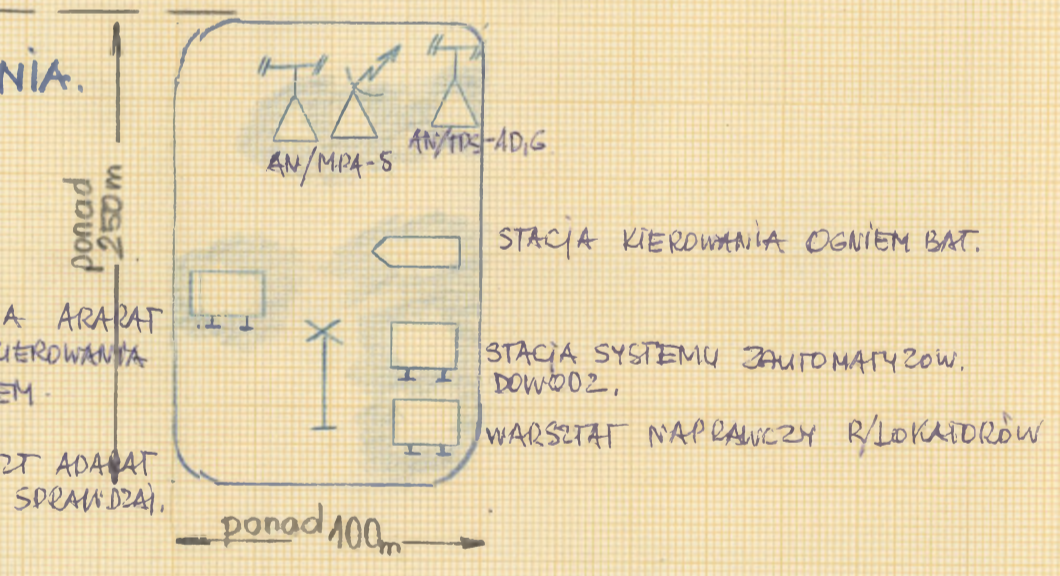 NIA.
AN/MPA-5
AN/TPS-1D,G
ponad
250m
STACJA KIEROWANIA OGNIEM BAT.
A ARARAT
KIEROWANIA
EM.
STACJA SYSTEMU ZAUTOMATYZOW.
DOWODZ.
WARSZTAT NAPRAWCZY R/LOKATORÓW
ZT APARAT
SPRAWDZAJ.
ponad 100m